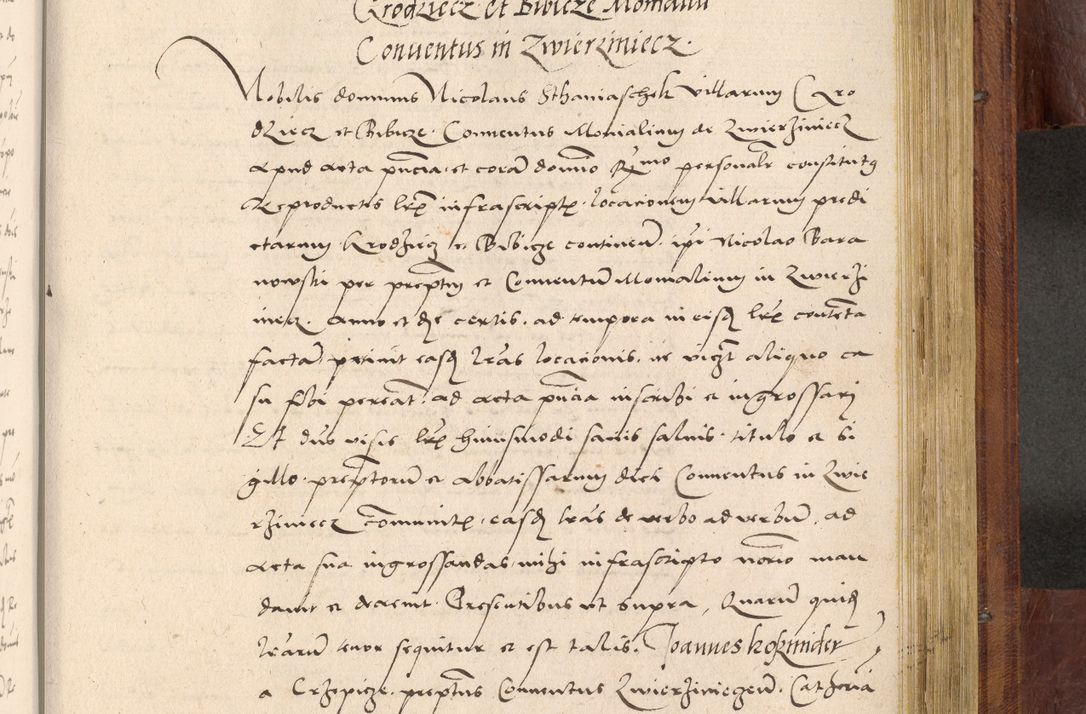 Krodziecz et Bibicze Monialiu
Conuentus in Zwierziniecz.
Nobilis dominus Nicolaus Sthaniaschek villarum Cro
dziecz et Bibicze. Conuentus Monialium de Zwierziniecz
apud acta pntia et corã domino Rmo personalr constitutq
Reproductis lris infrascriptis locationem villarum predi
ctarum Krodziecz et Bibicze continen. ipi Nicolao Bara
nowski per preptum et Conuentũ Monialium in Zwierzi
niecz. anno et die certis. ad tempora in eisd lris contenta
factam, petiuit easd lras locationis, ne aliquo ca
su sibi pereant, ad acta pntia inscribi et ingrossari
Et dns visis lris huiusmodi sanis saluis. titulo et si
gillo. preptorum et abbatissarum dicti Conuentus in Zwie
rziniecz communitis, easd lras de verbo ad verbũ, ad
acta sua ingrossandas mihi infrascripto notrio man
dauit et decreuit. Presentibus ut supra, Quarũ quid
lrarũ tenor sequitur et est talis. Joannes
a Crzepicze. preptus Conuentus Zwierziniecen. Catheri